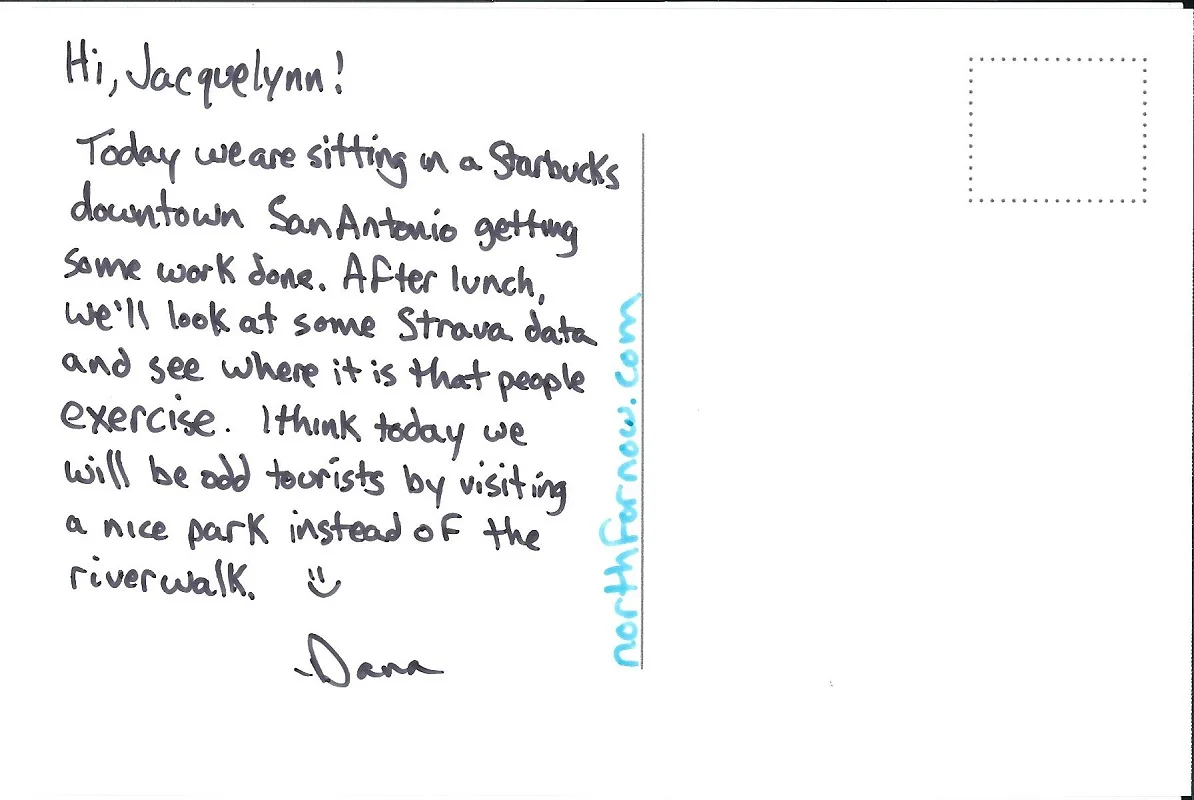 Hi, Jacquelynn!
Today we are sitting in a Starbucks
downtown San Antonio getting
some work done. After lunch,
we'll look at some Strava data
and see where it is that people
exercise. I think today we
will be odd tourists by visiting
a nice park instead of the
riverwalk. :)
-Dana
northfornow.com